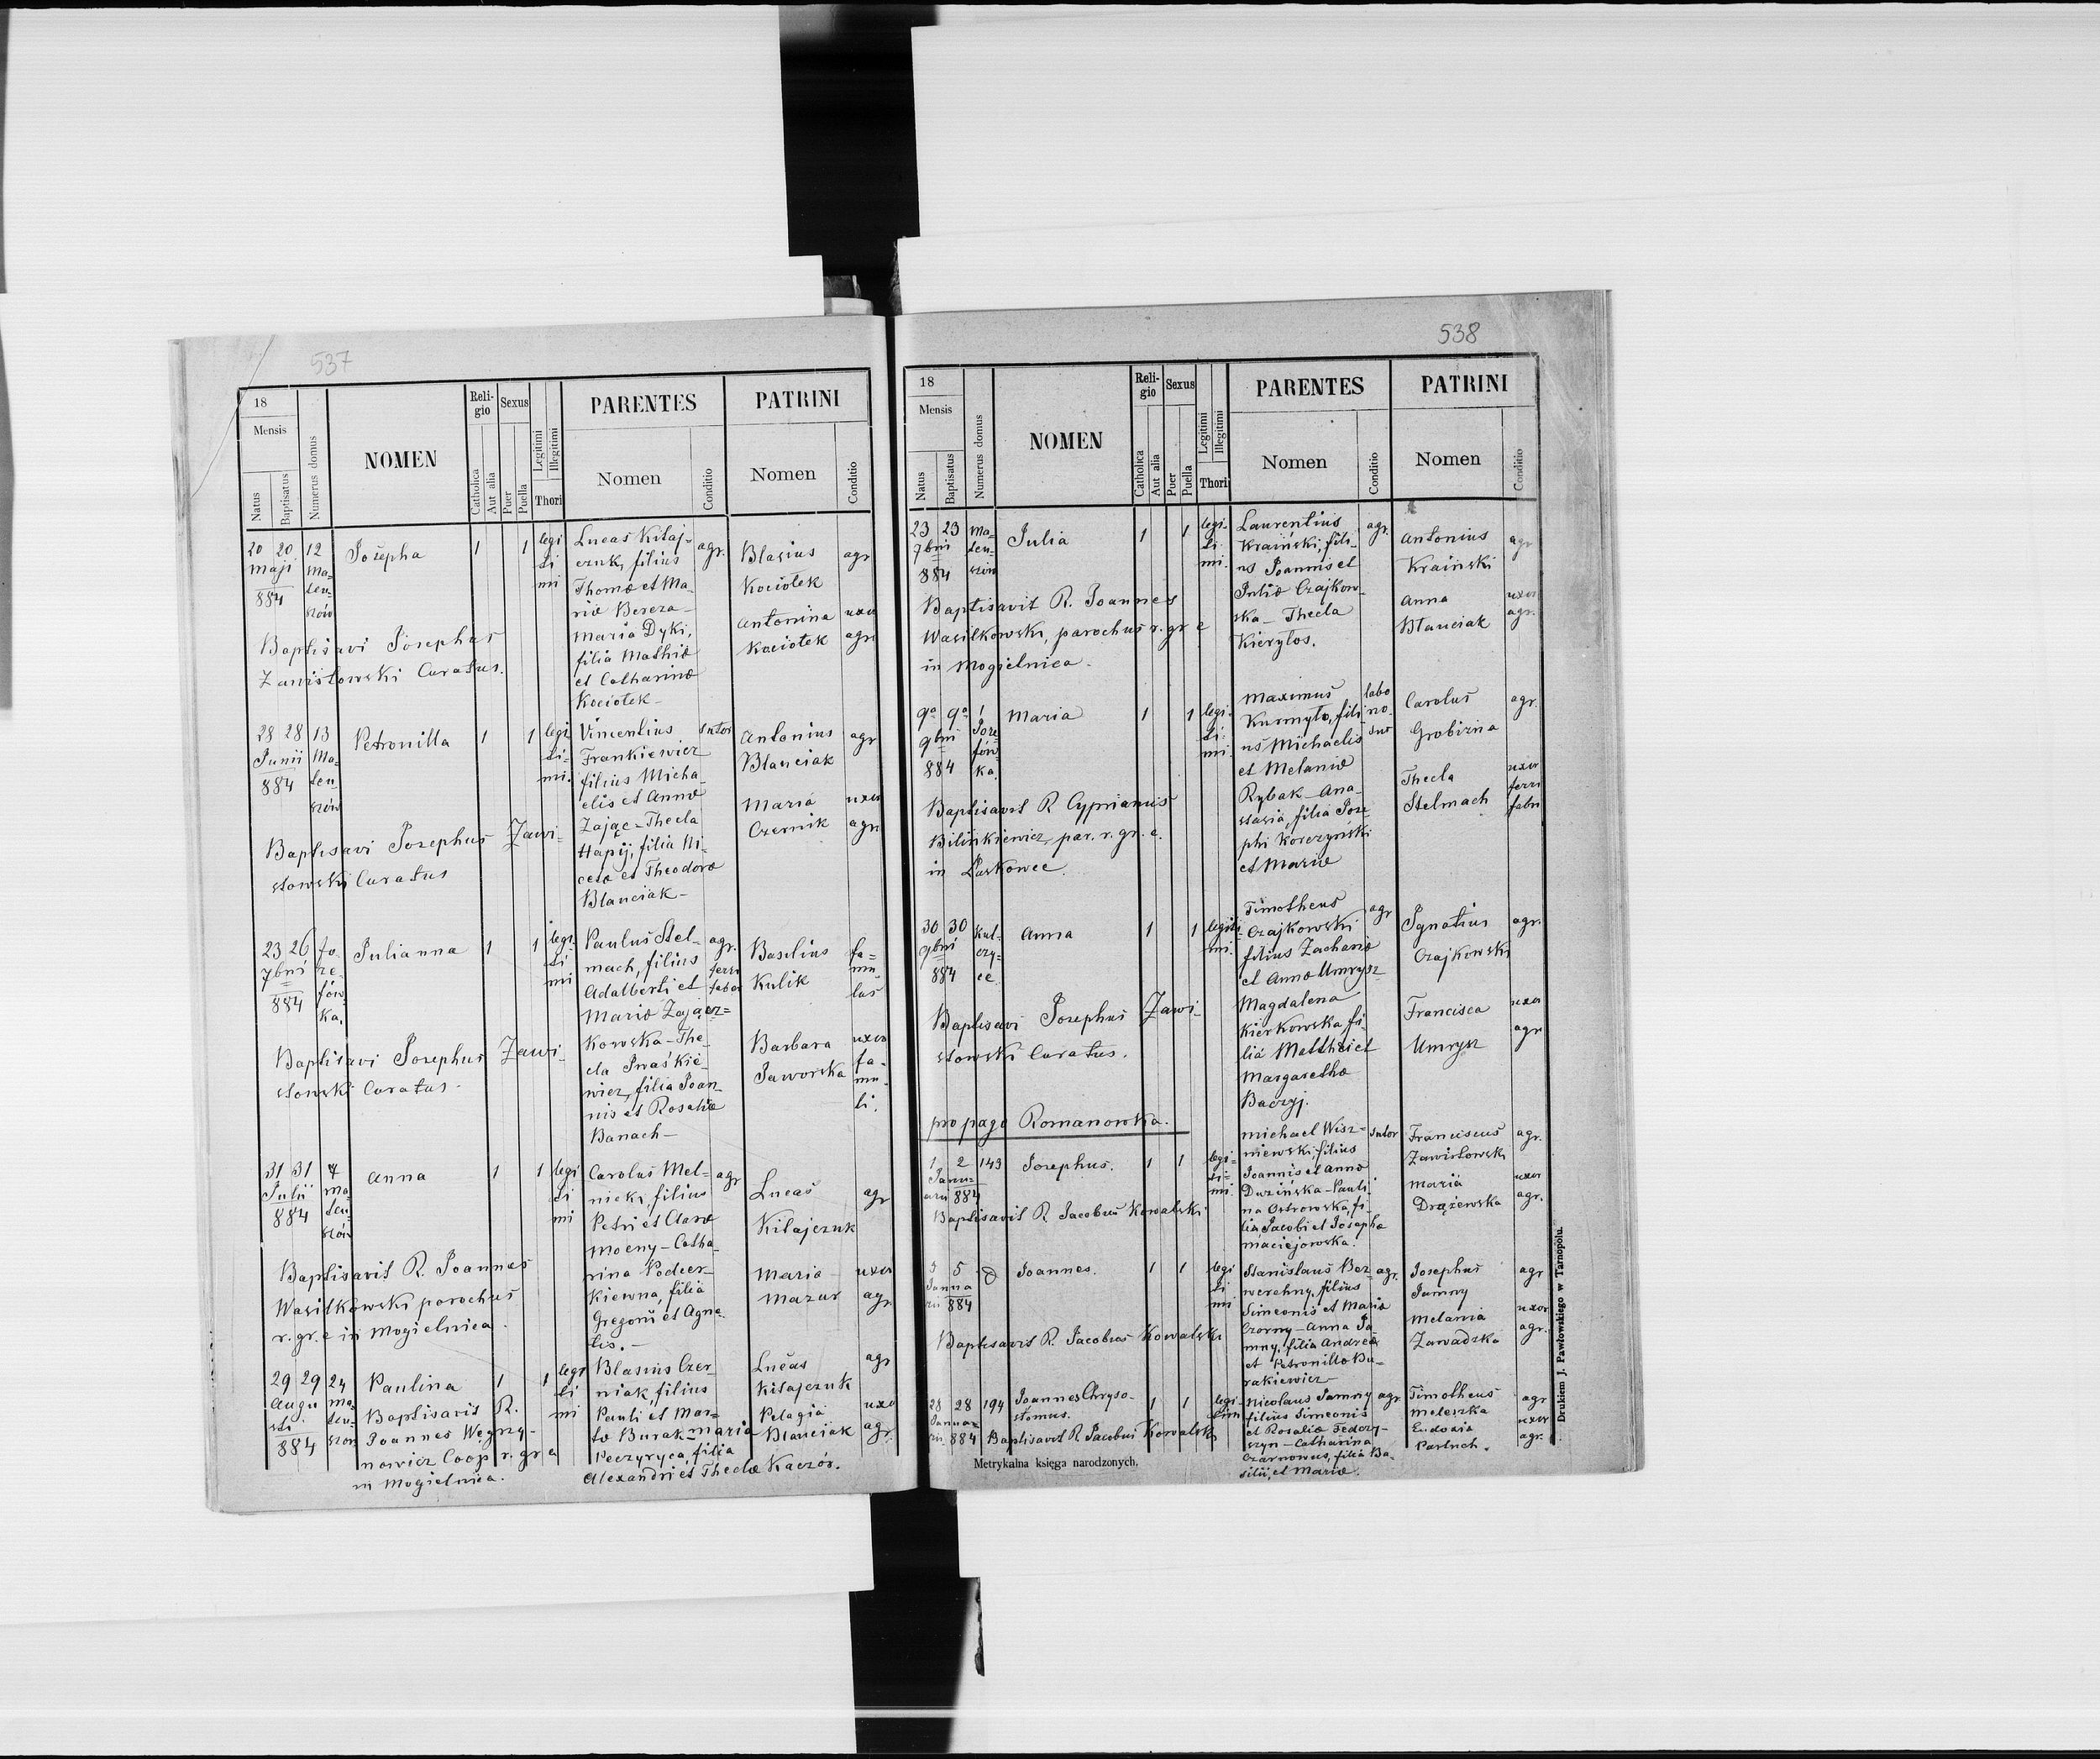 537
18
Mensis
Natus
Baptisatus
Numerus domus
NOMEN
Religio
Catholica
Aut alia
Sexus
Puer
Puella
Legitimi
Illegitimi
Thori
PARENTES
Nomen
Conditio
PATRINI
Nomen
Conditio
20 20 12
Maji Ma-
884 teu-
szów
Josepha
1 1
legi
ti
mi
Lucas Kitaj-
czuk, filius
Thomæ et Ma-
riæ Bereza-
Maria Dyki,
filia Mathiæ
et Catharinæ
Kociołek-
agr.
Blasius
Kociołek
agr
Antonina
Kociołek
uxor
agr
Baptisavi Josephus
Zawisłowski Curatus.
28 28 13
Junii Ma-
884 teu-
szów
Petronilla
1 1
legi
ti-
mi.
Vincentius
Frankiewicz
filius Micha-
elis et Annæ
Zając-Thecla
Hapij, filia Ni-
cetæ et Theodoræ
Blauciak-
sutor
Antonius
Blauciak
agr
Maria
Czernik
uxor
agr
Baptisavi Josephus Zawi-
słowski Curatus
23 26 Jo-
7bri ze-
884 fów
ka.
Julianna
1 1
legi.
ti
mi
Paulus Stel-
mach, filius
Adalberti et
Mariæ Zającz=
kowska-The-
cla Iwaśkie-
wicz, filia Joan-
nis et Rosaliæ
Banach-
agr.
ferri
faber
Basilius
Kulik
fa=
mu-
lus
Barbara
Jaworska
uxor
fa-
mu-
li.
Baptisavi Josephus Zawi-
słowski Curatus-
31 31 4
Julii Ma-
884 teu-
szów
Anna
1 1
legi
ti
mi
Carolus Mel-
nick, filius
Petri et Claræ
Mocny-Catha-
rina Podcer-
kiewna, filia
Gregorii et Agne-
tis.-
agr
Lucas
Kitajczuk
agr
Maria
Mazur
uxor
agr
Baptisavit R. Joannes
Wasilkowski parochus
r. gr. c in Mogielnica.
29 29 24
Augu Ma-
sti teu-
884 szów
Paulina
1 1
legi
ti
mi
Blasius Czer
niak, filius
Pauli et Mar=
tæ Burak-Maria
Peczyryca, filia
Alexandri et Theclæ Kaczór.
Lucas
Kitajczuk
agr
Pelagia
Blauciak
uxo
agr
Baptisavit R.
Joannes Węgrzy-
nowicz Coop r. gr c
in Mogielnica.
538
18
Mensis
Natus
Baptisatus
Numerus domus
NOMEN
Religio
Catholica
Aut alia
Sexus
Puer
Puella
Legitimi
Illegitimi
Thori
PARENTES
Nomen
Conditio
PATRINI
Nomen
Conditio
23 23 Ma-
7bri teu-
884 szów
Julia
1 1
legi-
ti-
mi.
Laurentius
Kraiński, fili-
us Joannis et
Juliæ Czajkow-
ska-Thecla
Kieryłos.
agr.
Antonius
Kraiński
agr
Anna
Blauciak
uxor
agr.
Baptisavit R. Joannes
Wasilkowski, parochus r. gr c
in Mogielnica.
9a 9a 1
9bri Joze-
884 fów
ka.
Maria
1 1
legi-
ti-
mi.
Maximus
Kurmyło, fili
us Michaelis
et Melaniæ
Rybak-Ana-
stasia, filia Jose
phi Korczyński
et Mariæ
labo
rio-
sus
Carolus
Grobizna
agr.
Thecla
Stelmach
uxor
ferri
fabri
Baptisavit R Cyprianus
Bilinkiewicz, par. r. gr. c.
in Laskowce.
30 30 Kul-
9bri czy-
884 ce
Anna
1 1
legiti-
mi.
Timotheus
Czajkowski
filius Zachariæ
et Annæ Umrysz
Magdalena
Kierkowska, fi-
lia Matthiæ et
Margarethæ
Baczyj.
agr
Ignatius
Czajkowski
agr.
Francisca
Umrysz
uxor
agr
Baptisavi Josephus Zawi-
słowski Curatus.
pro pago Romanowka.
1 2 149
Janu=
arii 884
Josephus.
1 1
legi=
ti=
mi.
Michael Wisz-
niewski, filius
Joannis et Annæ
Duzińska-Pauli-
na Ostrowska, fi-
lia Jacobi et Josepha
Maciejowska.
sutor
Franciscus
Zawisłowski
agr.
Maria
Drążewska
uxor
agr.
Baptisavit R. Jacobus Kowalski
5
Janna
rii 884
Joannes.
1 1
legi
ti
mi
Stanislaus Bez-
werchny, filius
Simeonis et Mariæ
Czorny-Anna Ja-
mny, filia Andreæ
et Petronillæ Bu-
rakiewicz
agr.
Josephus
Jamny
agr
Melania
Zawadzka
uxor
agr.
Baptisavit R. Jacobus Kowalski
28 28 194
Janua=
rii 884
Joannes Chryso-
stomus.
1 1
legi-
timi
Nicolaus Jamny
filius Simeonis
et Rosaliæ Fedczy-
szyn-Catharina
Czarnowus, filia Ba-
silii, et Mariæ.
agr
Timotheus
Meleszka
agr
Eudoxia
Parluch.
uxor
agr.
Baptisavit R Jacobus Kowalski
Metrykalna księga narodzonych.
Drukiem J. Pawłowskiego w Tarnopolu.